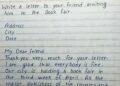 Write a letter to your friend inviting
him to the Book fair.
Address
City
Date
My Dear friend
Thank you very much for your letter.
I am glad that everybody is fine.
Our city is holding a book fair in
the third week of April. It is